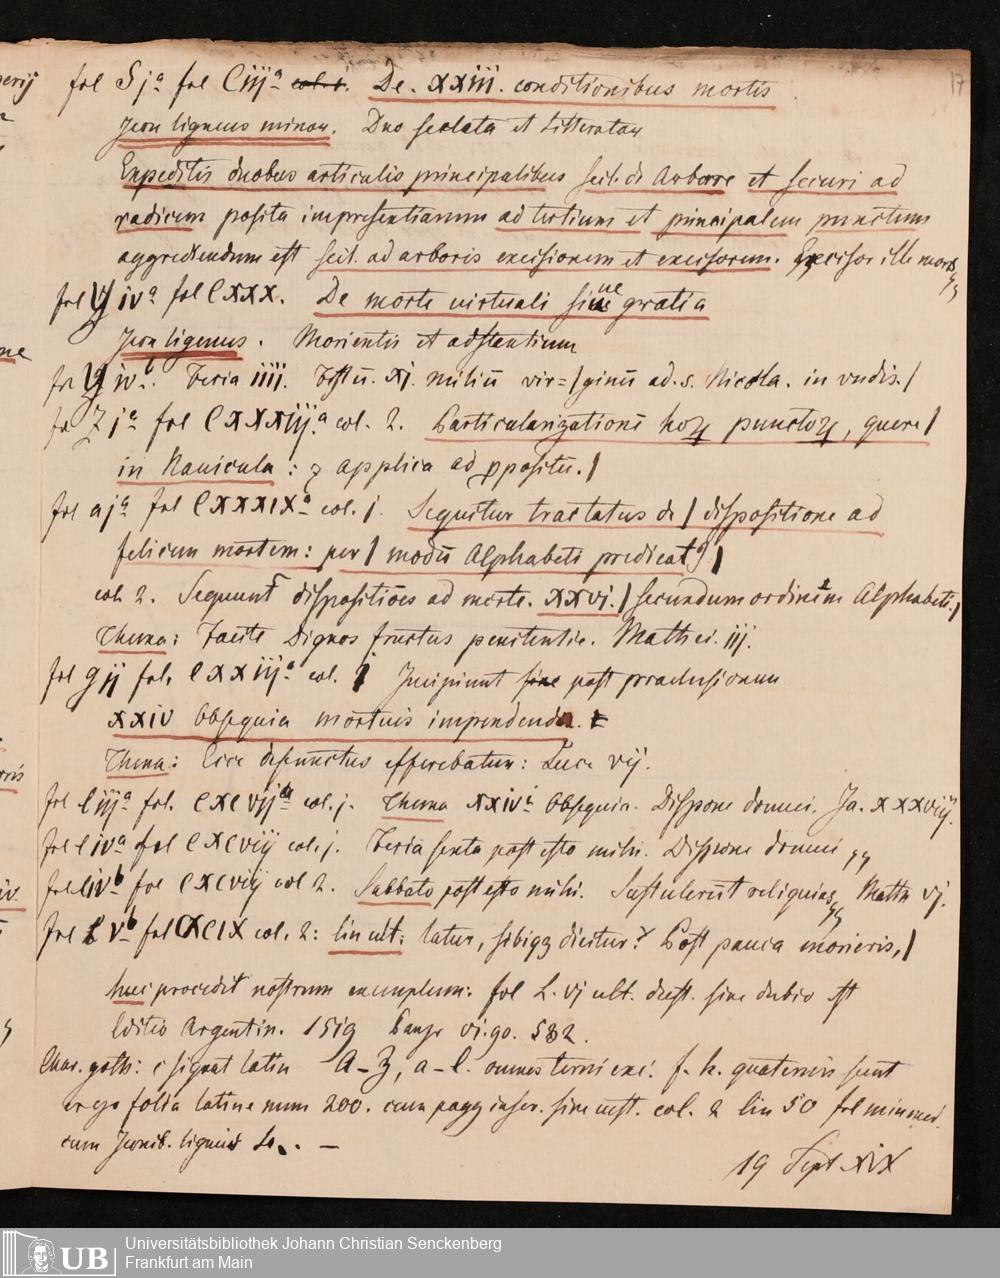 17
fol S jª fol Ciijª col. 1. De. xxiii. conditionibus mortis
Icon ligneus minor. Duo scelata et Litteratur
Expeditis duobus articulis principalibus scil. de Arbore et securi ad
radicem posita impresentiarum ad tertium et principalem punctum
aggrediendum est scil. ad arboris excisionem et excisorem. Excisor ille mors
fol y ivª fol Cxxx. De morte virtuali sine gratia
Icon ligneus. Morientis et adstantium
fol y ivᵇ. Feria iiij. vir=/ginū ad. s. Nicola. in vndis./
fo Z jª fol CXXXiijª. col. 2. Particularizationē hoꝝ punctoꝝ, quere/
in Nauicula: ⁊ applica ad ꝓpositū./
fol a jª fol CXXXIXª col. j. Sequitur tractatus de / dispositione ad
felicem mortem: per / modū Alphabeti predicatꝰ/
col. 2. Sequunt dispositiōes ad mortē. xxvj. / secundum ordinem Alphabeti./
Thema: Facite dignos fructus penitentie. Matthei. iij.
fol g ij fol. Cxxiijª col. j Incipiunt post praelusionem
xxiv Obsequia mortuis impendenda.
Thema: Ecce defunctus efferebatur: Luce vij.
fol l iijª fol. CXCvijª col. j. Thema xxiv Obsequia. Dispone domui. Ja. xxxviij.
fol l ivª fol CXCviij col. j. Feria sexta post esto mihi. Dispone domui
fol livᵇ fol CXCviij col 2. Sabbato post esto mihi. Sustulerūt reliquias Matth vj.
fol l vᵇ fol CXCIX col. 2: lin ult: latur, sibiqꝫ dicitur? Post pauca morieris,/
huc procedit nostrum exemplum. fol L. vj ult. deest. sine dubio est
Editio Argentin. 1519 Panzr vi. 90. 532.
Char. goth: c signat latin A–Z, a–l. omnes terni exc. f. k. quaterni sunt
ergo folia latine num 200. cum pagg inscr. sine cust. col. 2 lin 50 fol min med.
cum Iconib. ligneis –
19 Sept XIX
Universitätsbibliothek Johann Christian Senckenberg
Frankfurt am Main
UB